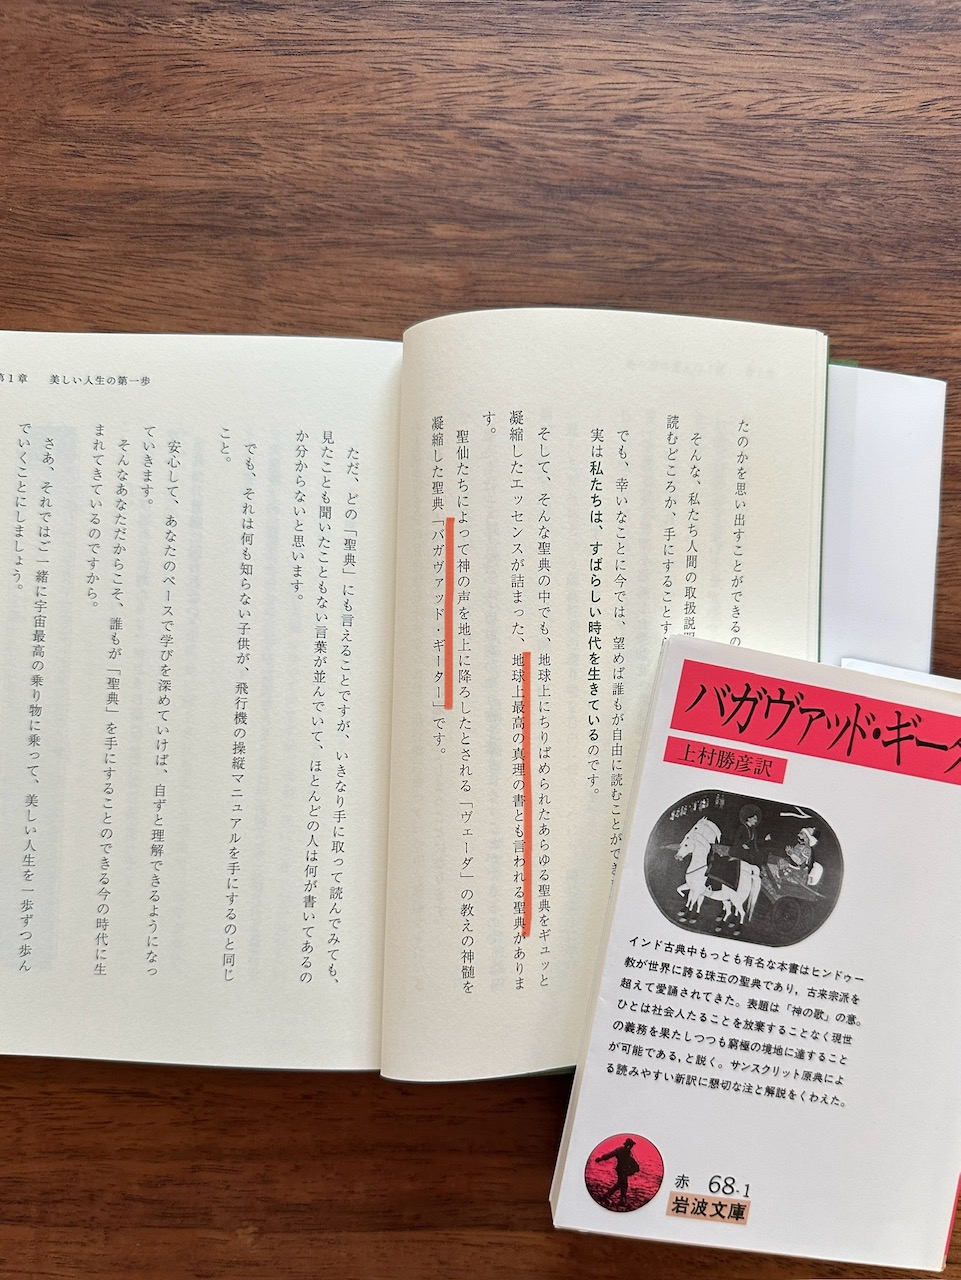 たのかを思い出すことができるの
そんな、私たち人間の取扱説
読むどころか、手にすることす
でも、幸いなことに今では、望めば誰もが自由に読むことができ
実は私たちは、すばらしい時代を生きているのです。
そして、そんな聖典の中でも、地球上にちりばめられたあらゆる聖典をギュッと
凝縮したエッセンスが詰まった、地球上最高の真理の書とも言われる聖典がありま
す。
聖仙たちによって神の声を地上に降ろしたとされる「ヴェーダ」の教えの神髄を
凝縮した聖典「バガヴァッド・ギーター」です。
第1章 美しい人生の第一歩
ただ、どの「聖典」にも言えることですが、いきなり手に取って読んでみても、
見たことも聞いたこともない言葉が並んでいて、ほとんどの人は何が書いてあるの
か分からないと思います。
でも、それは何も知らない子供が、飛行機の操縦マニュアルを手にするのと同じ
こと。
安心して、あなたのペースで学びを深めていけば、自ずと理解できるようになっ
ていきます。
そんなあなただからこそ、誰もが「聖典」を手にすることのできる今の時代に生
まれてきているのですから。
さあ、それではご一緒に宇宙最高の乗り物に乗って、美しい人生を一歩ずつ歩ん
でいくことにしましょう。
バガヴァッド・ギータ
上村勝彦訳
インド古典中もっとも有名な本書はヒンドゥー
教が世界に誇る珠玉の聖典であり，古来宗派を
超えて愛誦されてきた。表題は「神の歌」の意。
ひとは社会人たることを放棄することなく現世
の義務を果たしつつも窮極の境地に達すること
が可能である，と説く。サンスクリット原典によ
る読みやすい新訳に懇切な注と解説をくわえた。
赤 68-1
岩波文庫